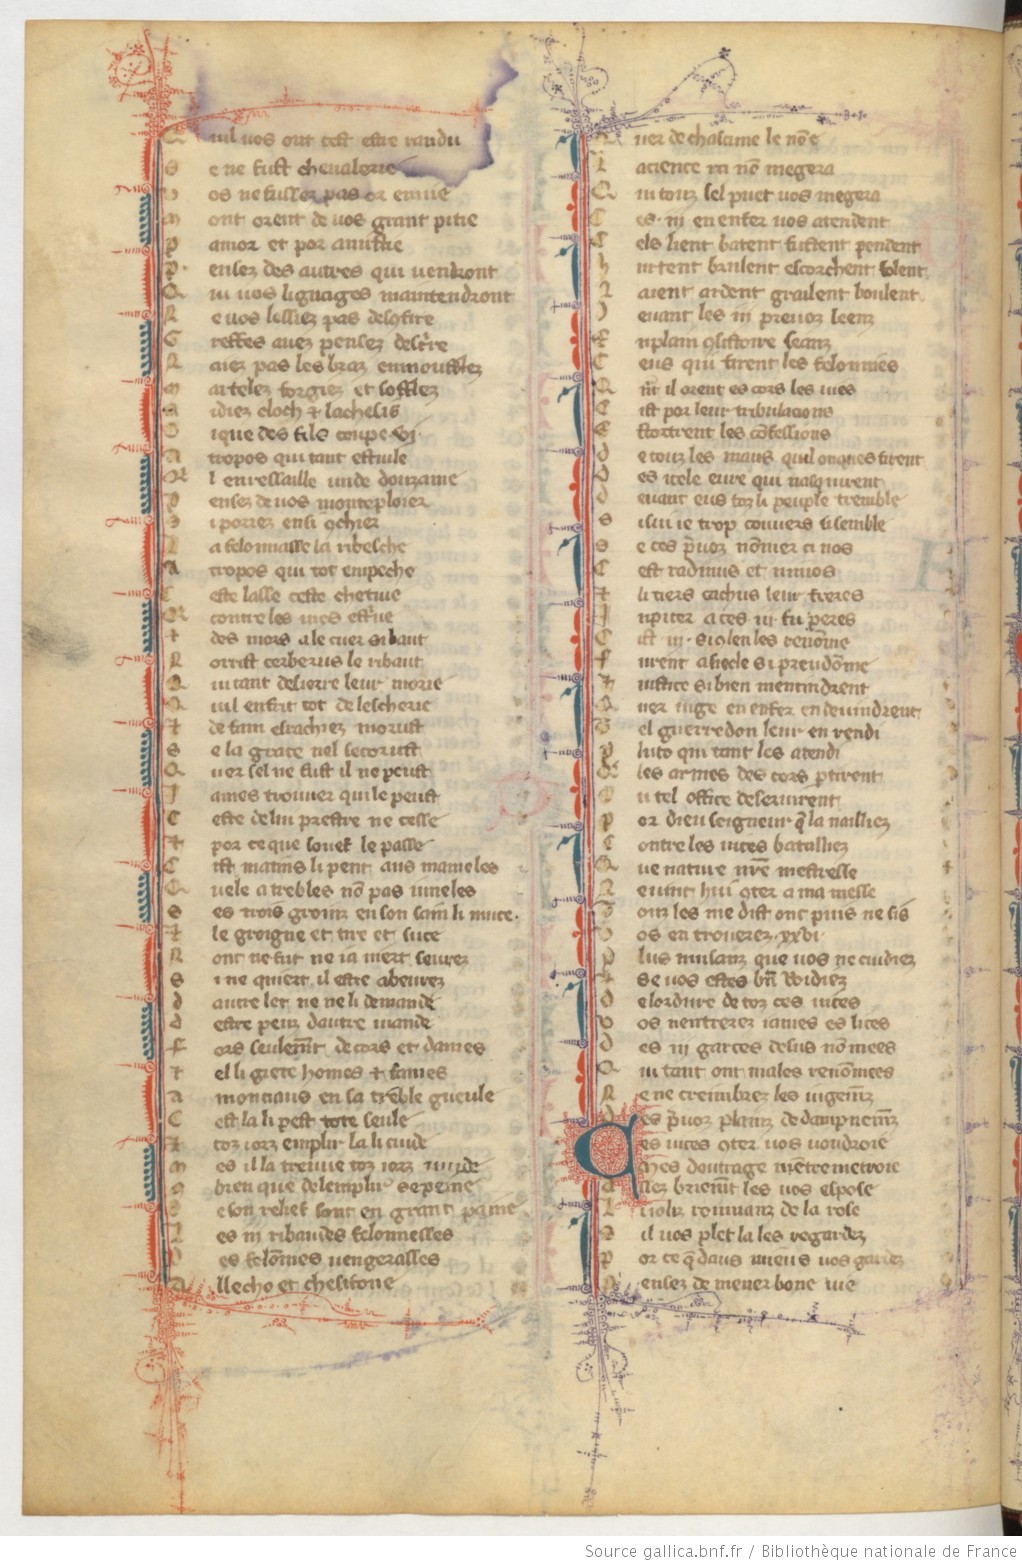 Q uil vos ont cest estre randu
S e ne fust chevalerie
V os ne fussez pas or en vie
m ont orent de vos grant pitie
p amor et por amistie
p ensez des autres qui vendront
Q ui vos lignages maintendront
N e vos lessiez pas desconfire
G reffes avez pensez descrire
N aiez pas les braz enmouflez
m artelez forgiez et soufflez
a idiez cloch & lachesis
S ique des fils coupe vi
A tropos qui tant est vile
p ensez de vos monteploier
S i poriez ensi conchier
L a felonnasse la ribesche
A tropos qui tot empeche
C este lasse ceste chetive
Q contre les vies estrive
t des mors a le cuer si baut
N orrist cerberus le ribaut
Q ui tant desierre leur morie
Q uil en frit tot de lescherie
t de fain esrachiez morust
S e la grace nel secorust
Q uer sel ne fust il ne peust
J ames trouver qui le peust
C este de lui prestre ne cesse
t por ce que souef le passe
C ist matins li pent aus mameles
Q uele a trebles non pas iumeles
S es trois groinz en son sain li muce
t le groigne et tire et suce
N onc ne fut ne ia niert sevrez
S i ne quiert il estre abevrez
d autre let ne ne li demande
d estre peuz dautre viande
F ors seulement de cors et dames
t el li giete homes & fames
a monciaus en sa treble gueule
C est la li pest tote seule
t toz iorz emplir la li cuide
m es il la treuve toz iorz vuide
c bien que de lemplir se peine
D e son relief sont en grant paine
L es iii ribaudes felonnesses
D es felonnies vengeresses
A llecho et thesifone
Q uer de chascune le non e
L a tierce ra non megera
Q ui touz sel puet vos megera
C es iii en enfer vos atendent
C els lient batent fustent pendent
h urtent brulent escorchent folent
N aient ardent graillent boulent
D evant les iii prevoz leenz
E n plain consistoire seanz
C eus qui firent les felonnies
Q nt il orent es cors les vies
C ist por leur tribulacions
E stortrent les confessions
d e touz les maus quil onques firent
d es icele eure qui nasquirent
d evant eus toz li peuple tremble
S i sui ie trop couvers si semble
S e ces prevoz nommer ci nos
C est radmus et minos
t li tiers eachus leur freres
J upiter a ces iii fu peres
C ist iii si olen les renomme
F urent a siecle si preudomme
t iustice si bien meintindrent
Q uer iuge en enfer en devindrent
T el guerredon leur en rendi
p luto qui tant les atendi
Q les armes des cors partirent
Q u tel office deservirent
p or dieu seigneur que la nailliez
C ontre les vices batailliez
Q ue nature nre mestresse
N e vint hui conter a ma messe
T ouz les me dist onc puis ne sis
V os en trouverez xxvi
p lus nuisanz que vos ne cuidiez
t se vos estes bn vuidiez
d e lordure de toz ces vices
V os nenterez iames es lices
d es iii garces desus nommees
Q ui tant ont males renommees
N e ne creimbrez les iugemenz
D es prevoz plainz de dampnemenz
C es vices conter vos voudroie
M es doutrage mentremetroie
A ssez briement les vos espose
L i iolis romanz de la rose
S il vos plet la les regardez
P or ce que daus mieus vos gardez
P ensez de mener bone vie
Source gallica.bnf.fr / Bibliothèque nationale de France